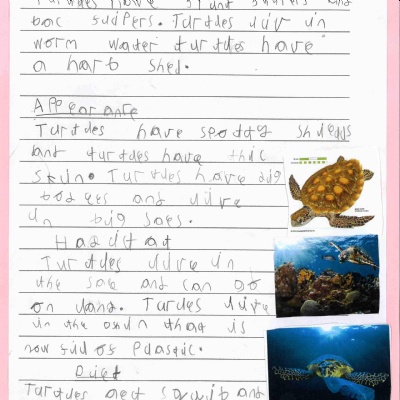 Turtdes have
bac suipers. Turtdes liv in
worm water turtdes have
a harb shed.
Appearance
Turtdes have spottg
and turtdes have thic
skin. Turtdes have big
bodees and live
in big soes.
Habitat
Turtdes live in
the soe and can go
on land. Turtdes live
in the oshin that is
now fild of Pdastic.
Diet
Turtdes eet squib and